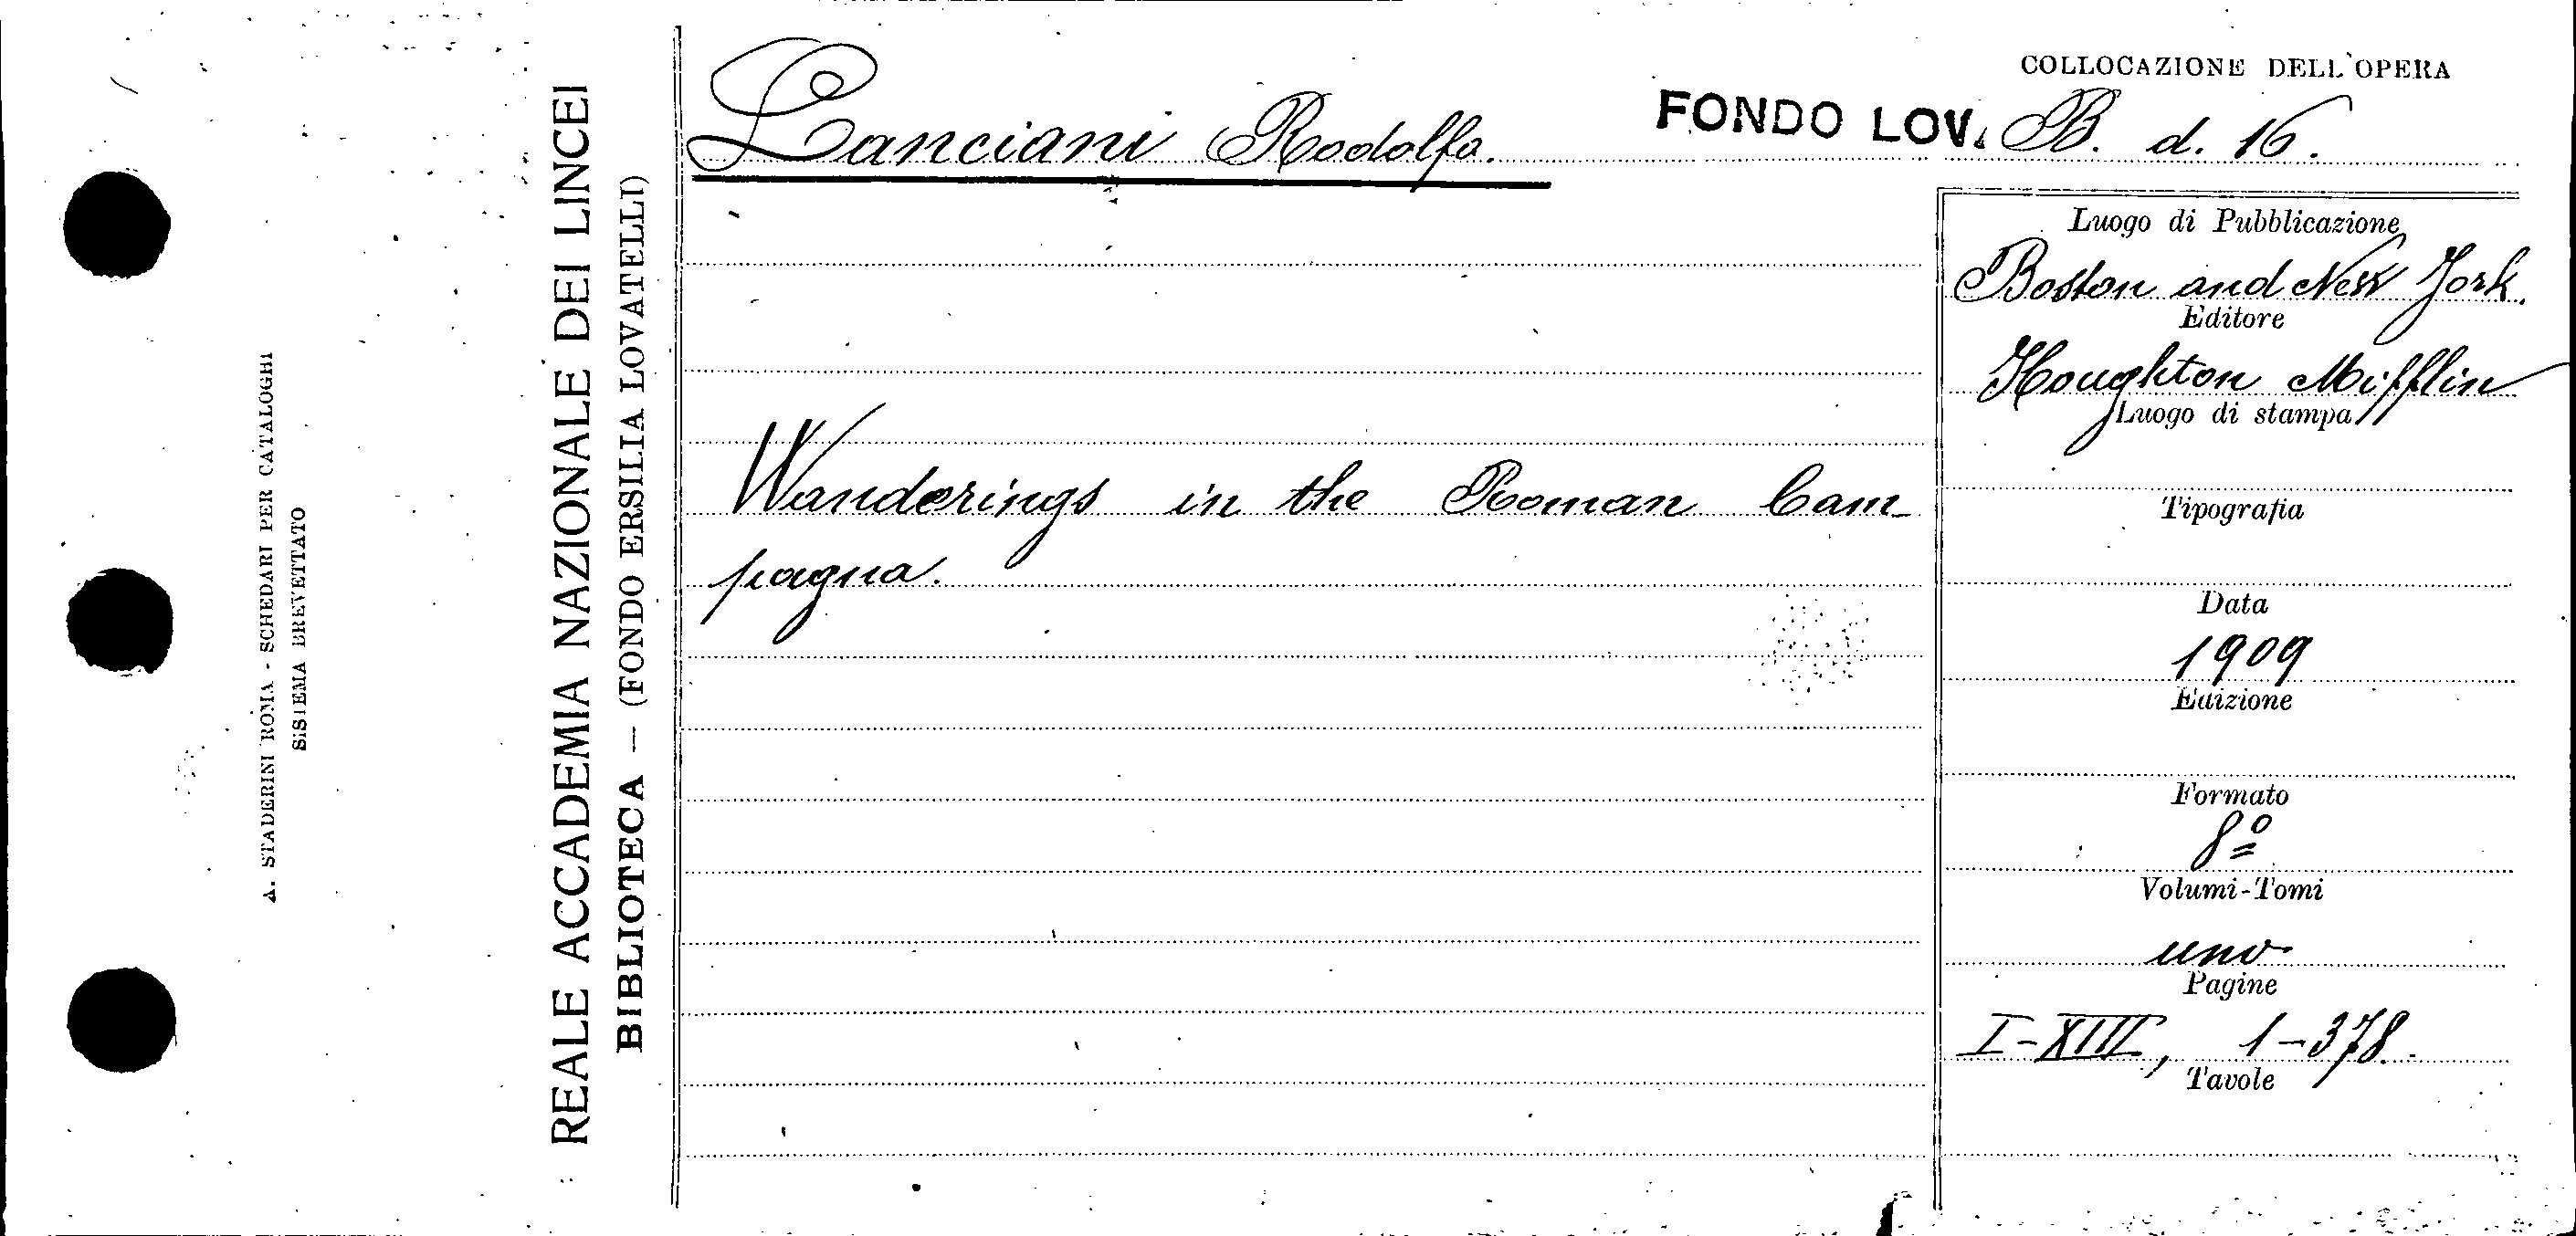 COLLOCAZIONE DELL'OPERA
Lanciani Rodolfo.
FONDO LOV. B. d. 16.
Wanderings in the Roman Cam
pagna.
Luogo di Pubblicazione
Boston and New York.
Editore
Houghton Mifflin
Luogo di stampa
Tipografia
Data
1909
Edizione
Formato
8º
Volumi-Tomi
uno
Pagine
I-XIII, 1-378.
Tavole
REALE ACCADEMIA NAZIONALE DEI LINCEI
BIBLIOTECA — (FONDO ERSILIA LOVATELLI)
A. STADERINI ROMA - SCHEDARI PER CATALOGHI
SISTEMA BREVETTATO